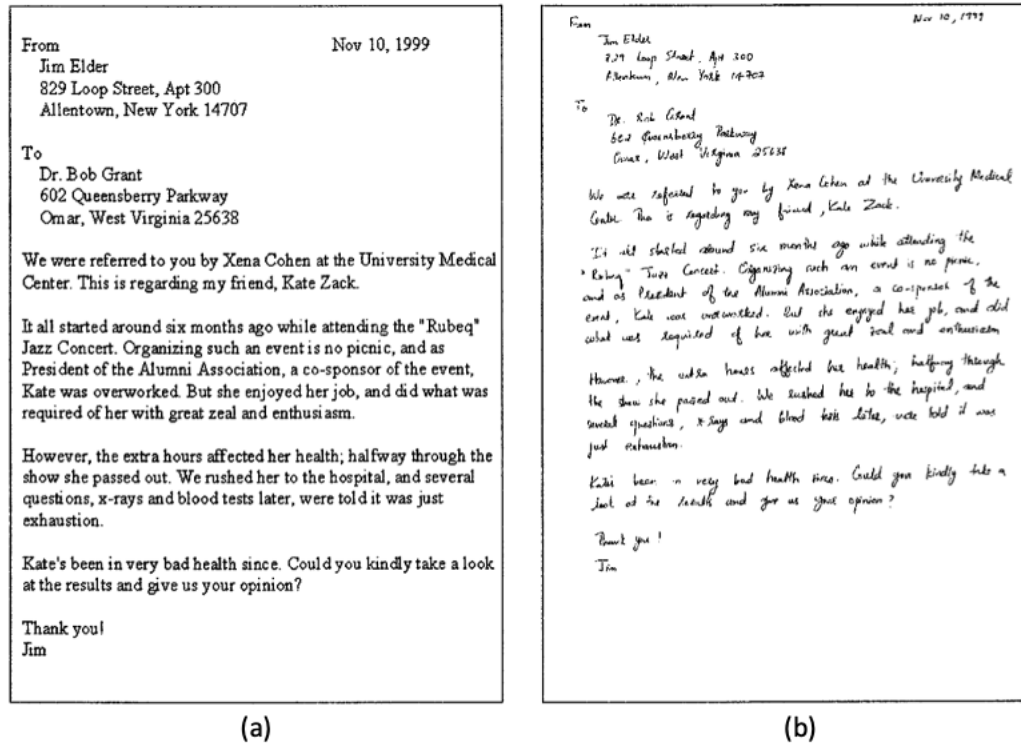 From Nov 10, 1999
Jim Elder
829 Loop Street, Apt 300
Allentown, New York 14707
To
Dr. Bob Grant
602 Queensberry Parkway
Omar, West Virginia 25638
We were referred to you by Xena Cohen at the University Medical
Center. This is regarding my friend, Kate Zack.
It all started around six months ago while attending the "Rubeq"
Jazz Concert. Organizing such an event is no picnic, and as
President of the Alumni Association, a co-sponsor of the event,
Kate was overworked. But she enjoyed her job, and did what was
required of her with great zeal and enthusiasm.
However, the extra hours affected her health; halfway through the
show she passed out. We rushed her to the hospital, and several
questions, x-rays and blood tests later, were told it was just
exhaustion.
Kate's been in very bad health since. Could you kindly take a look
at the results and give us your opinion?
Thank you!
Jim
(a)
From Nov 10, 1999
Jim Elder
829 Loop Street, Apt 300
Allentown, New York 14707
To
Dr. Bob Grant
602 Queensberry Parkway
Omar, West Virginia 25638
We were referred to you by Xena Cohen at the University Medical
Center This is regarding my friend, Kate Zack.
It all started around six months ago while attending the
"Rubeq" Jazz Concert. Organizing such an event is no picnic,
and as President of the Alumni Association, a co-sponsor of the
event, Kate was overworked. But she enjoyed her job, and did
what was required of her with great zeal and enthusiasm
However, the extra hours affected her health; halfway through
the show she passed out. We rushed her to the hospital, and
several questions, x-rays and blood tests later, were told it was
just exhaustion.
Kate's been in very bad health since. Could you kindly take a
look at the results and give us your opinion?
Thank you!
Jim
(b)